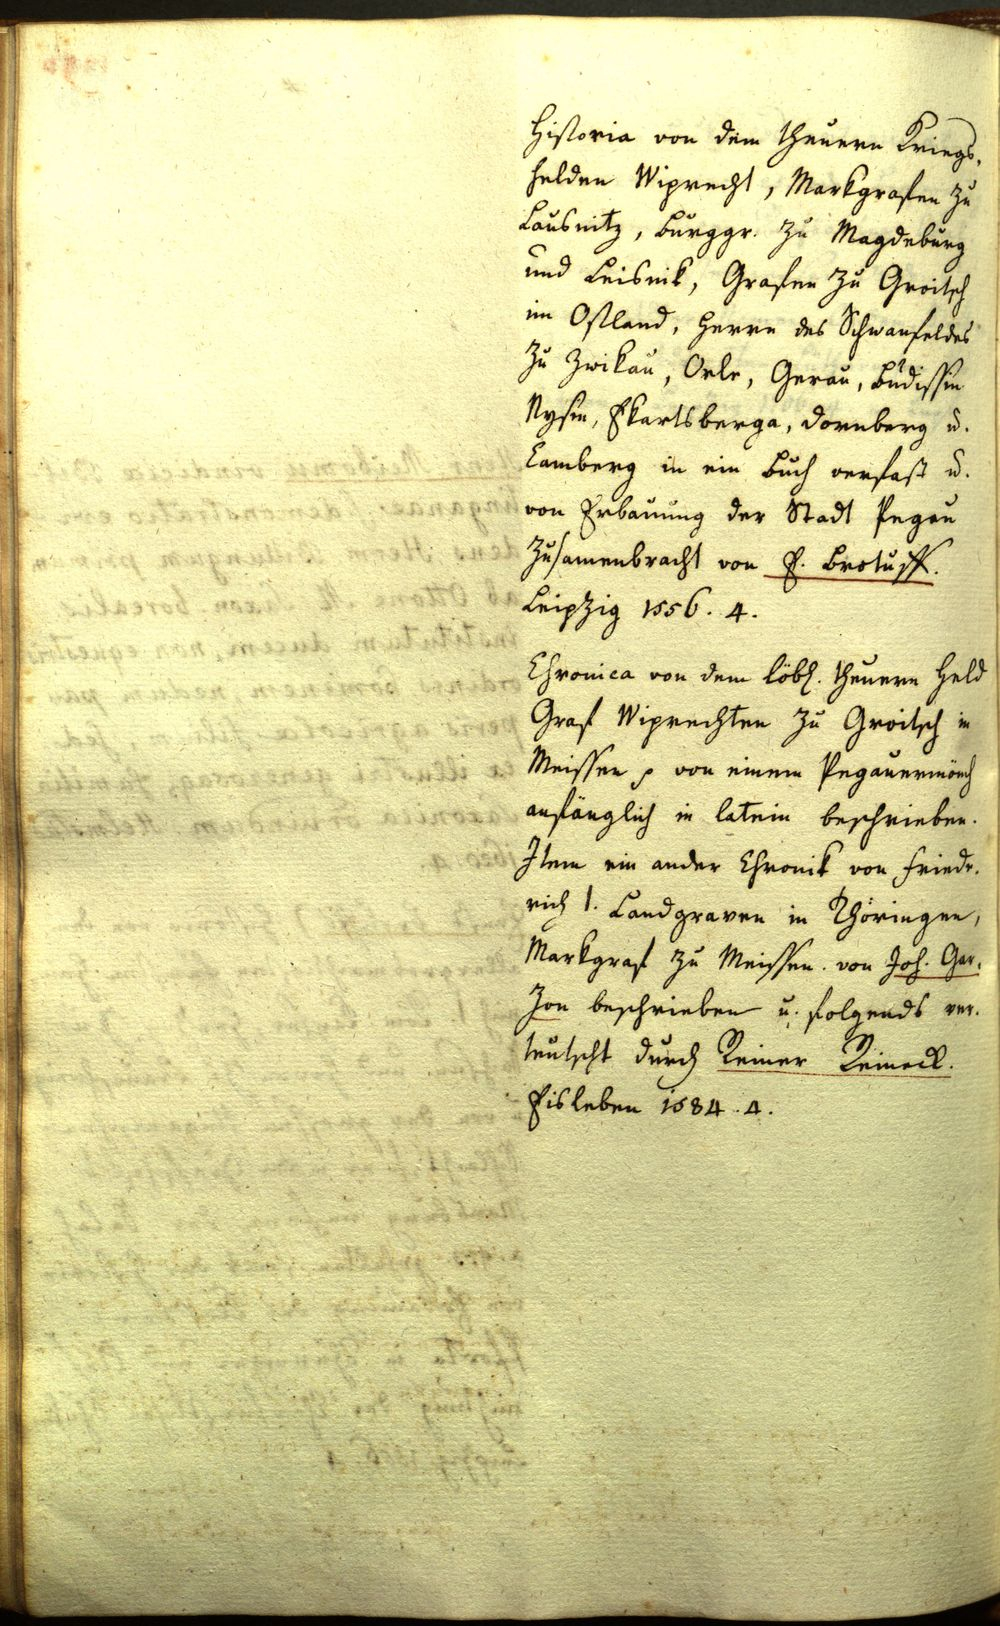 Historia von dem theuern Kriegs-
helden Wiprecht, Markgrafen zu
Lausnitz, Burggr. zu Magdeburg
und Leisnik, Grafen zu Groitsch
im Ostland, Herrn des Schwanfeldes
zu Zwikau, Orlr, Gerau, Budissin
Nysin, Ekartsberga, Dornberg u.
Camberg in ein Buch verfast u.
von Erbauung der Stadt Pegau
zusamenbracht von E. Brotuff.
Leipzig 1556. 4.
Chronica von dem löbl. theuern Held
Graf Wiprechten zu Groitsch in
Meissen p von einem Pegauermönch
anfänglich in latein beschrieben.
Item ein ander Chronik von Friede-
rich 1. Landgraven in Thöringen,
Markgraf zu Meissen. von Joh. Gar-
zon beschrieben u. folgends ver-
teutscht durch Reiner Reineck.
Eisleben 1584. 4.